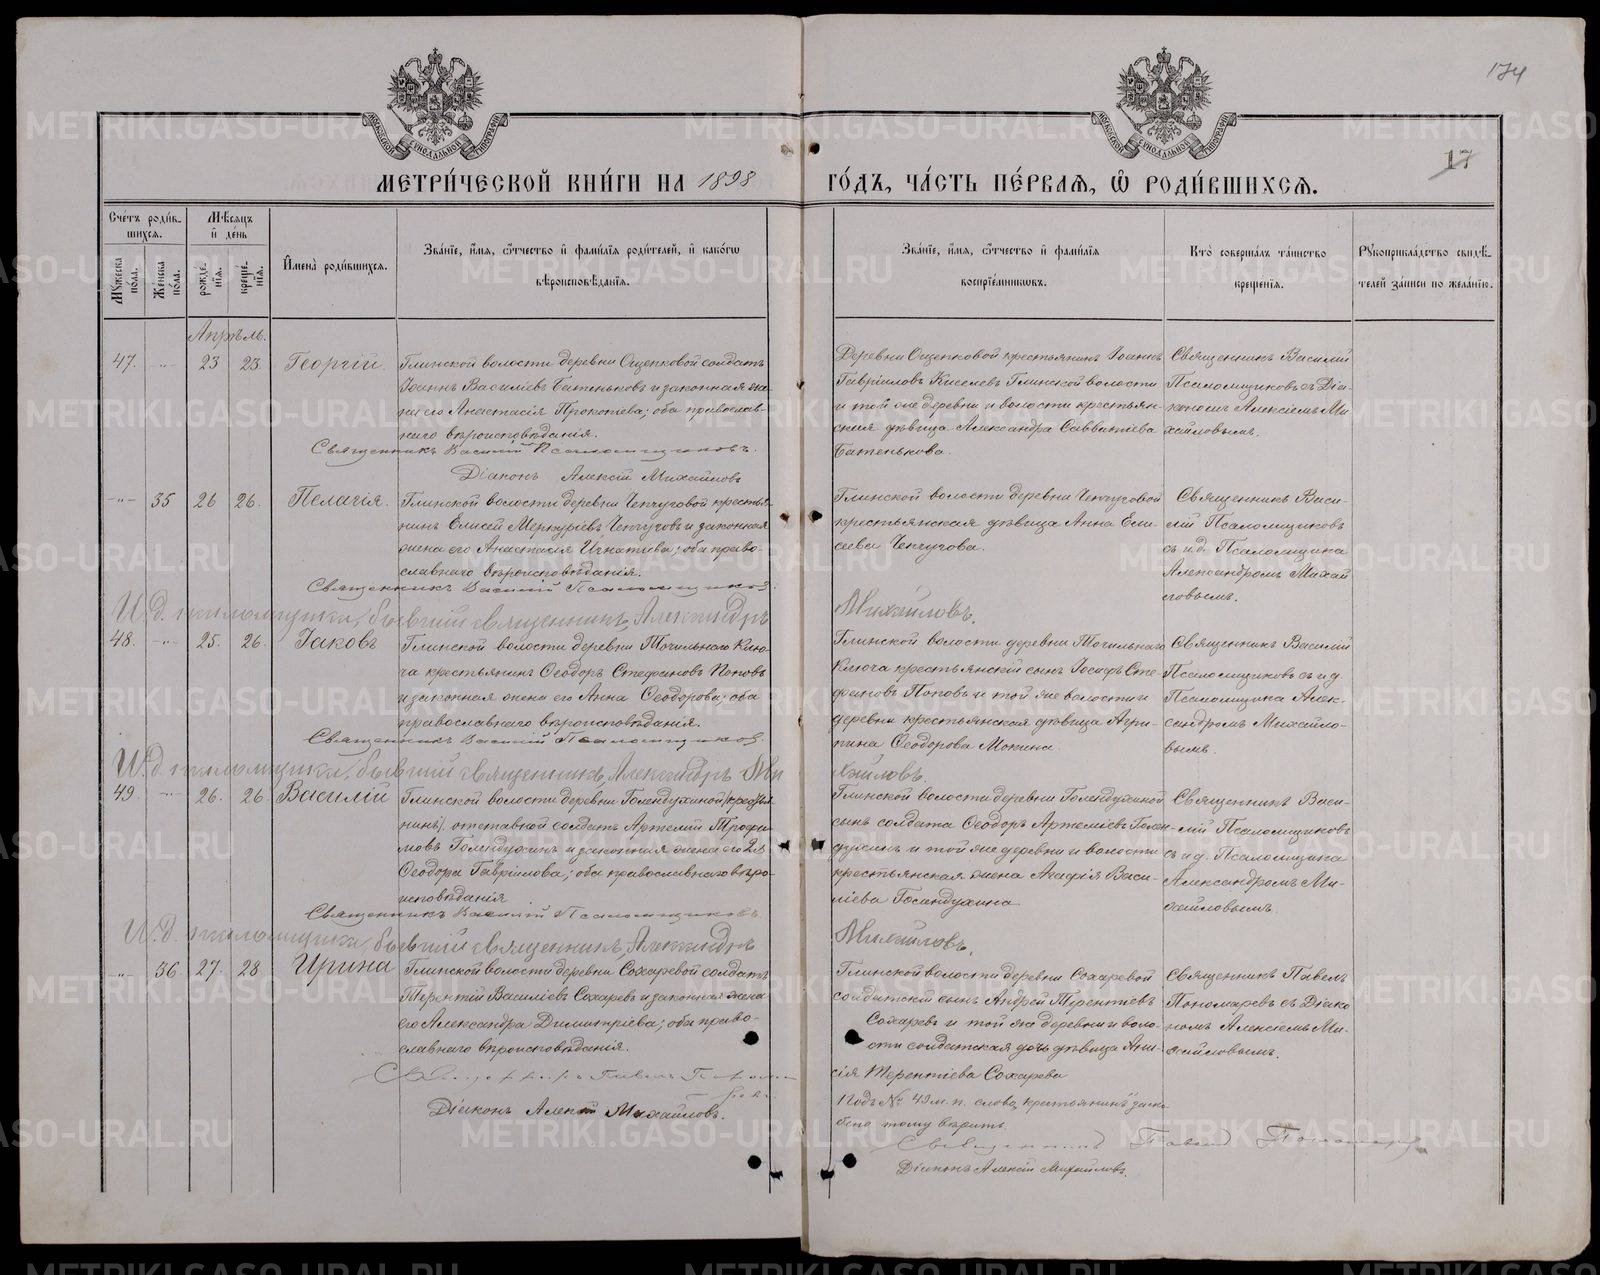 174
17
МЕТРИ́ЧЕСКОЙ КНИ́ГИ НА 1898
ГО́ДЪ, ЧА́СТЬ ПЕ́РВАЯ, Ѡ҆ РОДИ́ВШИХСЯ.
Сче́тъ роди́в-
шихся.
Му́жеска по́ла.
Же́нска по́ла.
Мѣ́сяцъ и҆ де́нь
рожде́нїя.
креще́нїя.
И҆мена̀ роди́вшихся.
Зва́нїе, и҆́мя, ѻ҆́тчество и҆ фами́лїя роди́телей, и҆ како́гѡ
вѣроисповѣ́данїя.
Зва́нїе, и҆́мя, ѻ҆́тчество и҆ фами́лїя
воспрїе́мниковъ.
Кто̀ соверша́лъ та́инство
креще́нїя.
Рꙋкоприкла́дство свидѣ́-
телей за́писи по жела́нїю.
Апрѣль.
47. -"- 23 23. Георгій.
Глинской волости деревни Ощепковой солдатъ
Іоаннъ Василіевъ Батеньковъ и законная же-
на его Анастасія Прокопіева; оба православ-
наго вѣроисповѣданія.
Священникъ Василій Псаломщиковъ.
Діаконъ Алексій Михайловъ
Деревни Ощепковой крестьянинъ Іоаннъ
Гавріиловъ Киселевъ Глинской волости
и той же деревни и волости крестьян-
ская дѣвица Александра Савватіева
Батенькова.
Священникъ Василій
Псаломщиковъ съ Діа-
кономъ Алексіемъ Ми-
хайловымъ.
-"- 35 26 26. Пелагія.
Глинской волости деревни Чепчуговой крестья-
нинъ Елисей Меркуріевъ Чепчуговъ и законная
жена его Анастасія Игнатіева; оба право-
славнаго вѣроисповѣданія.
Священникъ Василій Псаломщиковъ.
И. д. псаломщика, бывшій священникъ, Александръ
Михайловъ.
Глинской волости деревни Чепчуговой
крестьянская дѣвица Анна Ели-
сеева Чепчугова.
Священникъ Васи-
лій Псаломщиковъ
съ и.д. Псаломщика
Александромъ Михай
ловымъ.
48. -"- 25. 26. Іаковъ
Глинской волости деревни Точильнаго Клю-
ча крестьянинъ Ѳеодоръ Стефановъ Поповъ
и законная жена его Анна Ѳеодорова; оба
православнаго вѣроисповѣданія.
Священникъ Василій Псаломщиковъ.
И. д. псаломщика, бывшій священникъ, Александръ Ми
хайловъ.
Глинской волости деревни Точильнаго
Ключа крестьянскій сынъ Іосифъ Сте-
фановъ Поповъ и той же волости и
деревни крестьянская дѣвица Агри-
пина Ѳеодорова Мокина.
Священникъ Василій
Псаломщиковъ съ и.д.
Псаломщика Алек-
сандромъ Михайло-
вымъ.
49. -"- 26. 26 Василій
Глинской волости деревни Голендухиной /крестья
нинъ/. отставной солдатъ Артемій Трофи-
мовъ Голендухинъ и законная жена его 2я
Ѳеодора Гавріилова; оба православнаго вѣро-
исповѣданія
Священникъ Василій Псаломщиковъ.
И. д. псаломщика, бывшій священникъ, Александръ
Михайловъ.
Глинской волости деревни Голендухиной
сынъ солдата Ѳеодоръ Артеміевъ Голен-
духинъ и той же деревни и волости
крестьянская жена Агафія Васи-
ліева Голендухина
Священникъ Васи-
лій Псаломщиковъ
съ и.д. Псаломщика
Александромъ Ми-
хайловымъ.
-"- 36 27. 28 Ирина
Глинской волости деревни Сохаревой солдатъ
Терентій Василіевъ Сохаревъ и законная жена
его Александра Димитріева; оба право-
славнаго вѣроисповѣданія.
Діаконъ Алексій Михайловъ.
Глинской волости деревни Сохаревой
солдатскій сынъ Андрей Терентіевъ
Сохаревъ и той же деревни и воло-
сти солдатская дочь дѣвица Ани-
сія Терентіева Сохарева
Священникъ Павелъ
Пономаревъ съ Діако
номъ Алексіемъ Ми-
хайловымъ.
Подъ № 49 м. п. слово "крестьянинъ"
тому вѣрить.
Священникъ Павелъ Пономаревъ
Діаконъ Алексій Михайловъ.
METRIKI.GASO-URAL.RU